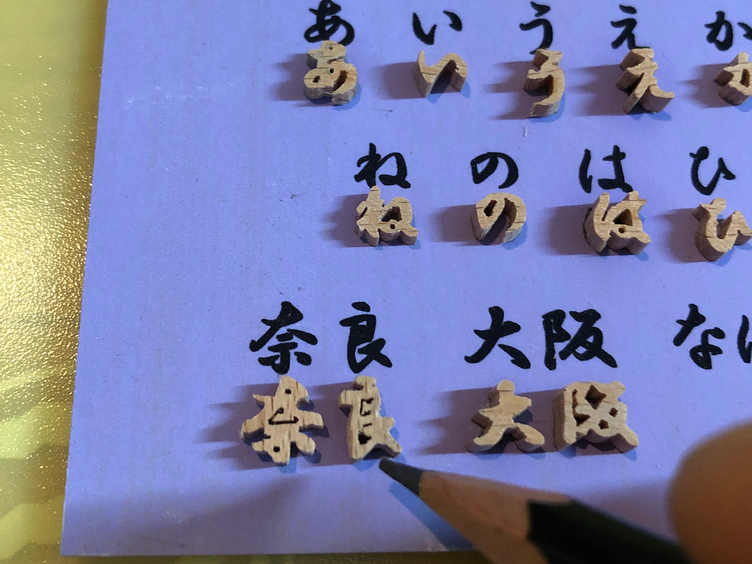 あ い う え か
あ い う え か
ね の は ひ
ね の は ひ
奈良 大阪 な
奈良 大阪